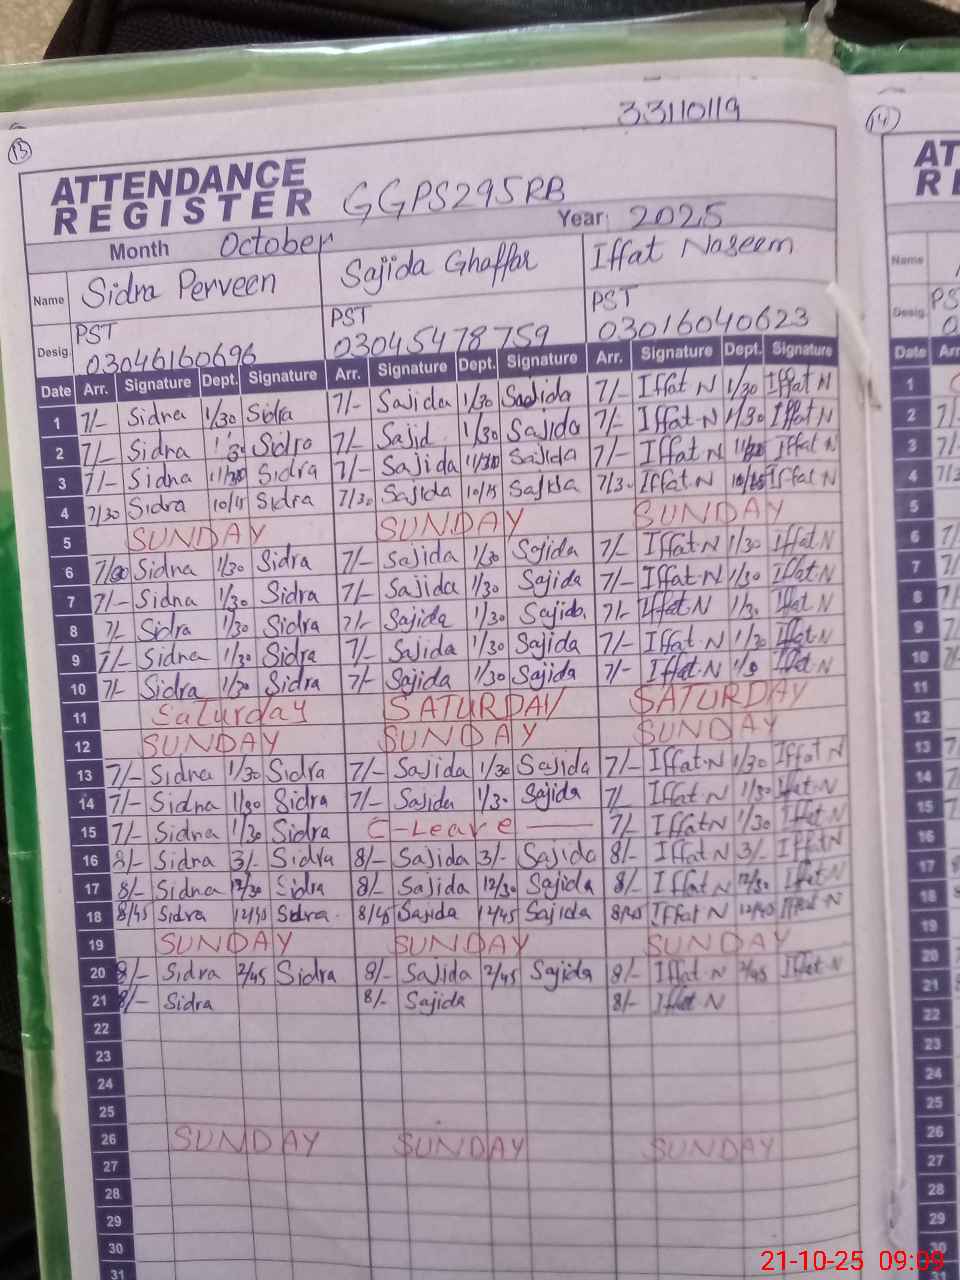 33110119
13
14
ATTENDANCE REGISTER GGPS295RB
Month October Year: 2025
Name Sidra Perveen Sajida Ghaffar Iffat Naseem
Desig. PST 03046160696 PST 03045478759 PST 03016040623
Date Arr. Signature Dept. Signature Arr. Signature Dept. Signature Arr. Signature Dept. Signature
1 7/- Sidra 1/30 Sidra 7/- Sajida 1/30 Sajida 7/- Iffat N 1/30 Iffat N
2 7/- Sidra Sidra 7/- Sajid 1/30 Sajida 7/- Iffat N 1/30 Iffat N
3 7/- Sidra Sidra 7/- Sajida 11/30 Sajida 7/- Iffat N Iffat N
4 7/30 Sidra 10/15 Sidra 7/30 Sajida 10/15 Sajida 7/30 Iffat N Iffat N
5 SUNDAY SUNDAY SUNDAY
6 Sidra 1/30 Sidra 7/- Sajida 1/30 Sajida 7/- Iffat N 1/30 Iffat N
7 7/- Sidra 1/30 Sidra 7/- Sajida 1/30 Sajida 7/- Iffat N 1/30 Iffat N
8 7/- Sidra 1/30 Sidra 7/- Sajida 1/30 Sajida 7/- Iffat N 1/30 Iffat N
9 7/- Sidra 1/30 Sidra 7/- Sajida 1/30 Sajida 7/- Iffat N 1/30 Iffat N
10 7/- Sidra 1/30 Sidra 7/- Sajida 1/30 Sajida 7/- Iffat N Iffat N
11 Saturday SATURDAY SATURDAY
12 SUNDAY SUNDAY SUNDAY
13 7/- Sidra 1/30 Sidra 7/- Sajida 1/30 Sajida 7/- Iffat N 1/30 Iffat N
14 7/- Sidra 1/30 Sidra 7/- Sajida 1/30 Sajida 7/- Iffat N 1/30 Iffat N
15 7/- Sidra 1/30 Sidra C-Leave 7/- Iffat N 1/30 Iffat N
16 8/- Sidra 3/- Sidra 8/- Sajida 3/- Sajida 8/- Iffat N 3/- Iffat N
17 8/- Sidra 12/30 Sidra 8/- Sajida 12/30 Sajida 8/- Iffat N 12/30 Iffat N
18 8/45 Sidra Sidra 8/45 Sajida 12/45 Sajida Iffat N Iffat N
19 SUNDAY SUNDAY SUNDAY
20 8/- Sidra 2/45 Sidra 8/- Sajida 2/45 Sajida 8/- Iffat N 2/45 Iffat N
21 8/- Sidra 8/- Sajida 8/- Iffat N
22
23
24
25
26 SUNDAY SUNDAY SUNDAY
27
28
29
30
31
Name
Desig. PS
Date
1
2
3
4
5
6
7
8
9
10
11
12
13
14
15
16
17
18
19
20
21
22
23
24
25
26
27
28
29
30
21-10-25 09:09